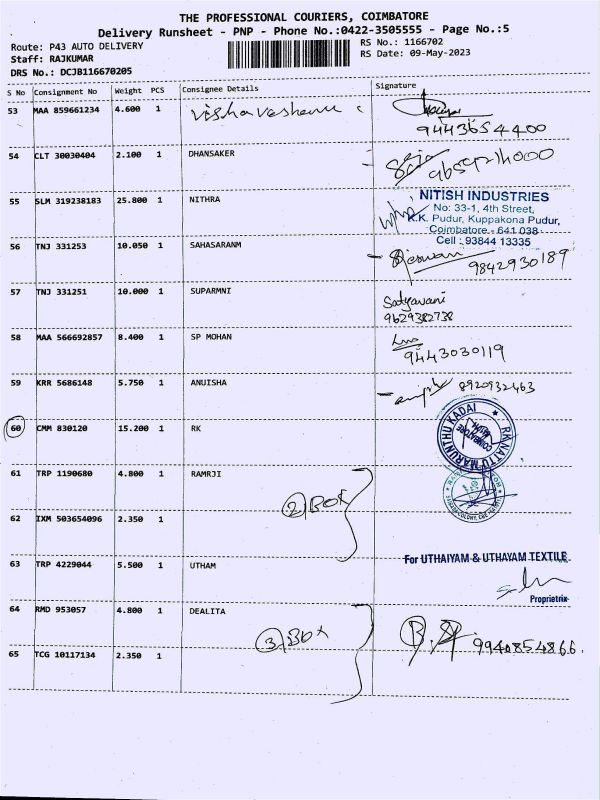 THE PROFESSIONAL COURIERS, COIMBATORE
Delivery Runsheet - PNP - Phone No.:0422-3505555 - Page No.:5
Route: P43 AUTO DELIVERY
RS No.: 1166702
Staff: RAJKUMAR
RS Date: 09-May-2023
DRS No.: DCJB116670205
S No Consignment No Weight PCS Consignee Details Signature
53 MAA 859661234 4.600 1
9443654400
54 CLT 30030404 2.100 1 DHANSAKER
55 SLM 319238183 25.800 1 NITHRA
NITISH INDUSTRIES
No: 33-1, 4th Street,
K.K. Pudur, Kuppakona Pudur,
Coimbatore - 641 038
Cell : 93844 13335
56 TNJ 331253 10.050 1 SAHASARANM
9842930189
57 TNJ 331251 10.000 1 SUPARMNI
Satyavani
9629382738
58 MAA 566692857 8.400 1 SP MOHAN
9443030119
59 KRR 5686148 5.750 1 ANUISHA
8920932463
60 CMM 830120 15.200 1 RK
RK NATTU MARUNTHU KADAI
COIMBATORE
61 TRP 1190680 4.800 1 RAMRJI
2 BOX
62 IXM 503654096 2.350 1
63 TRP 4229044 5.500 1 UTHAM
For UTHAIYAM & UTHAYAM TEXTILE
Proprietrix
64 RMD 953057 4.800 1 DEALITA
3 Box
9940854866.
65 TCG 10117134 2.350 1